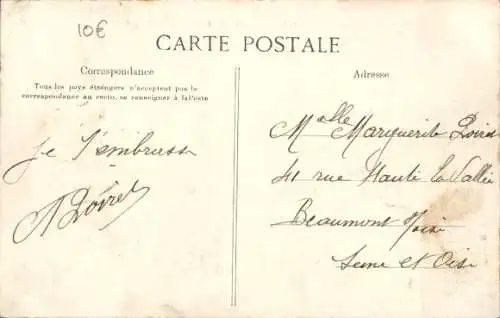 10€
CARTE POSTALE
Correspondance
Tous les pays étrangers n'acceptent pas la
correspondance au recto, se renseigner à la Poste
Je t'embrasse
A Loiret
Adresse
Melle Marguerite Loiret
41 rue Haute la Vallée
Beaumont s/oise
Seine et Oise